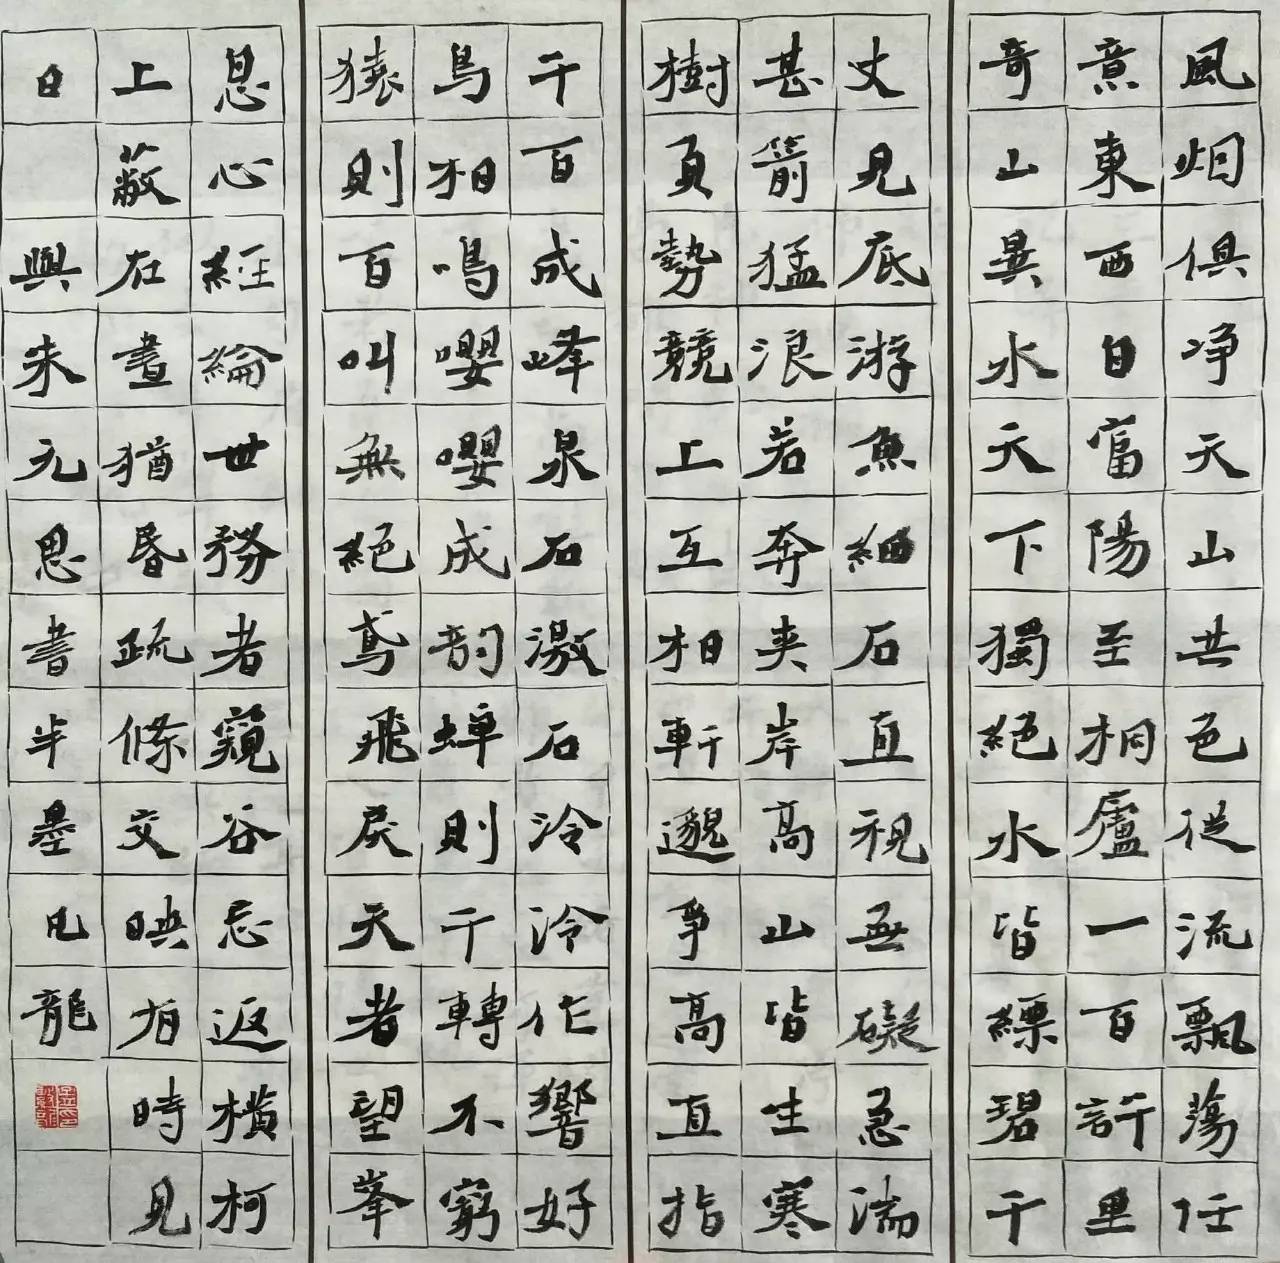 風烟俱净天山共色從流飄蕩任
意東西自富陽至桐廬一百許里
奇山異水天下獨絕水皆縹碧千
丈見底游魚細石直視無礙急湍
甚箭猛浪若奔夾岸高山皆生寒
樹負勢競上互相軒邈爭高直指
千百成峰泉石激石泠泠作響好
鳥相鳴嚶嚶成韵蟬則千轉不窮
猿則百叫無絕鳶飛戾天者望峯
息心經綸世務者窺谷忘返橫柯
上蔽在晝猶昏疏條交映有時見
日 與朱元思書半墨凡龍